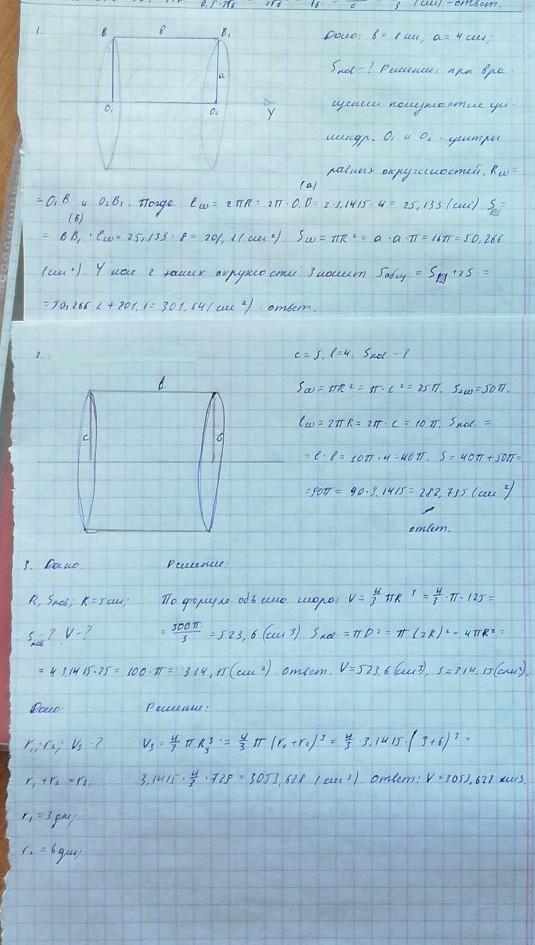 1.
B в B₁
a
O₁ O₂ Y
Дано: в = 8 см, a = 4 см;
Sпов - ? Решение: при вра-
щении получается ци-
линдр. O₁ и O₂ - центры
равных окружностей. Rш =
(a)
= O₁B и O₂B₁. Тогда lш = 2πR = 2π · O₁B = 2·3,1415·4 = 25,133 (см)
(в)
= BB₁ · lш = 25,133 · 8 = 201,1 (см²). Sш = πR² = a · a · π = 16π = 50,266
(см²). У нас 2 таких окружности значит Sобщ = S + 2S =
= 50,266·2 + 201,1 = 301,64 (см²) - ответ.
2.
c = 5, l = 4. Sпов - ?
c
Sш = πR² = π · c² = 25π. S2ш = 50π.
lш = 2πR = 2π · c = 10π. Sпов =
= l · l = 10π · 4 = 40π. S = 40π + 50π =
= 90π = 90 · 3,1415 = 282,735 (см²)
ответ.
3. Дано Решение:
R, Sпов; R = 5 см; По формуле объема шара: V = 4/3 πR³ = 4/3 · π · 125 =
Sпов - ? V - ? = 500π/3 = 523,6 (см³) Sпов = πD² = π(2R)² = 4πR² =
= 4·3,1415·25 = 100·π = 314,15 (см²). ответ. V = 523,6 (см³), S = 314,15 (см²).
Дано: Решение:
r₁; r₂; V₃ - ? V₃ = 4/3 π R₃³ = 4/3 π (r₁ + r₂)³ = 4/3 · 3,1415 · (3+6)³ =
r₁ + r₂ = r₃. 3,1415 · 4/3 · 728 = 3053,628 ответ: V = 3053,628
r₁ = 3 дм;
r₂ = 6 дм;